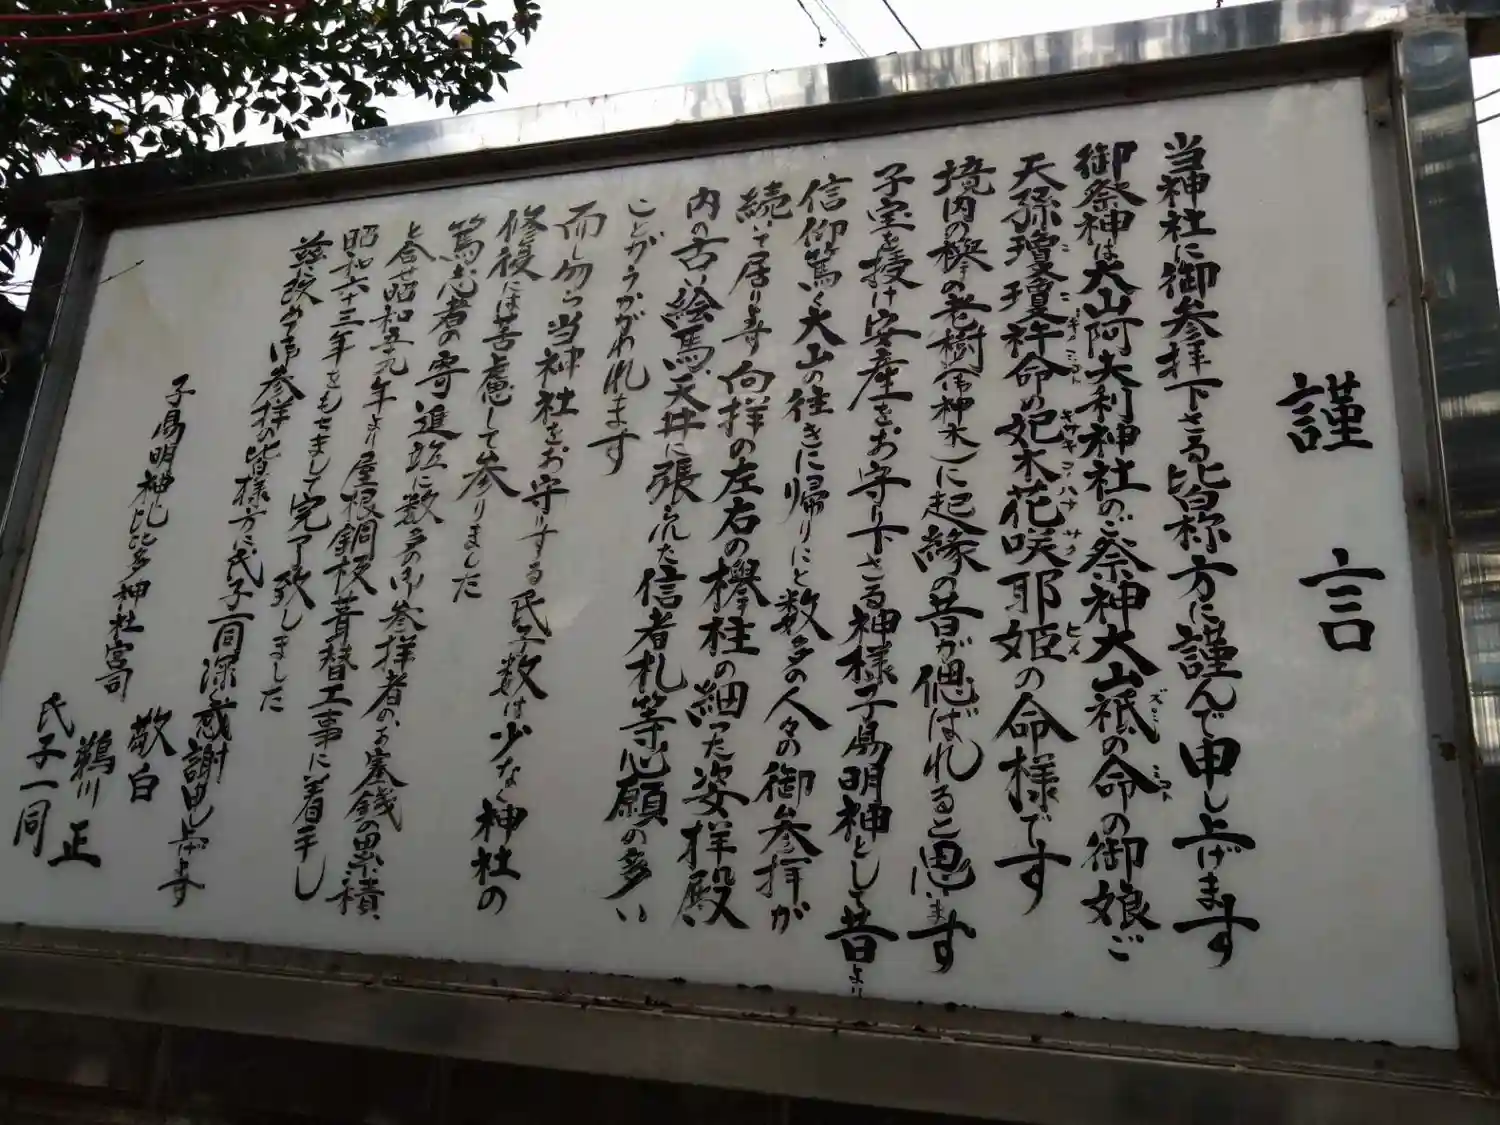 謹言
当神社に御参拝下さる皆称方に謹んで申し上げます
御祭神は大山阿夫利神社のご祭神大山祇の命の御娘ご
天孫瓊瓊杵命の妃木花咲耶姫の命様です
境内の欅の老樹(御神木)に起縁の昔が偲ばれると思います
子宝を授け安産をお守り下さる神様子易明神として昔より
信仰篤く大山の往きに帰りにと数多の人々の御参拝が
続いて居ります 向拝の左右の欅柱の細った姿拝殿
内の古い絵馬、天井に張られた信者札等心願の多い
ことがうかがわれます
而し乍ら当神社をお守りする氏子数は少なく神社の
修復には苦慮して参りました
篤志者の寄進竝に数多の御参拝者のお塞銭の累積
と合せ昭和五十九年より屋根銅板葺替工事に着手し
昭和六十三年をもちまして完了致しました
茲に改めて御参拝の皆様方に氏子一同深く感謝申し上げます
敬白
子易明神比比多神社宮司
鵜川 正
氏子一同